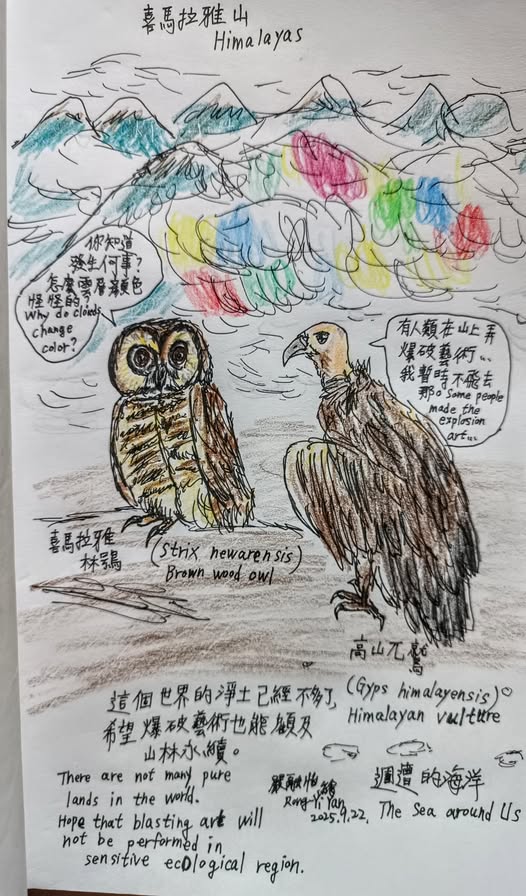 喜馬拉雅山
Himalayas
你知道
發生何事?
怎麼雲層顏色
怪怪的?
Why do clouds
change
color?
有人類在山上弄
爆破藝術...
我暫時不飛去
那。Some people
made the
explosion
art...
喜馬拉雅
林鴞
(Strix newarensis)
Brown wood owl
高山兀鷲
(Gyps himalayensis)
Himalayan vulture
這個世界的淨土已經不多了
希望爆破藝術也能顧及
山林永續。
There are not many pure
lands in the world.
Hope that blasting art will
not be performed in
sensitive ecological region.
嚴融怡繪
Rong-Yi Yan
2025.9.22.
週遭的海洋
The Sea around Us